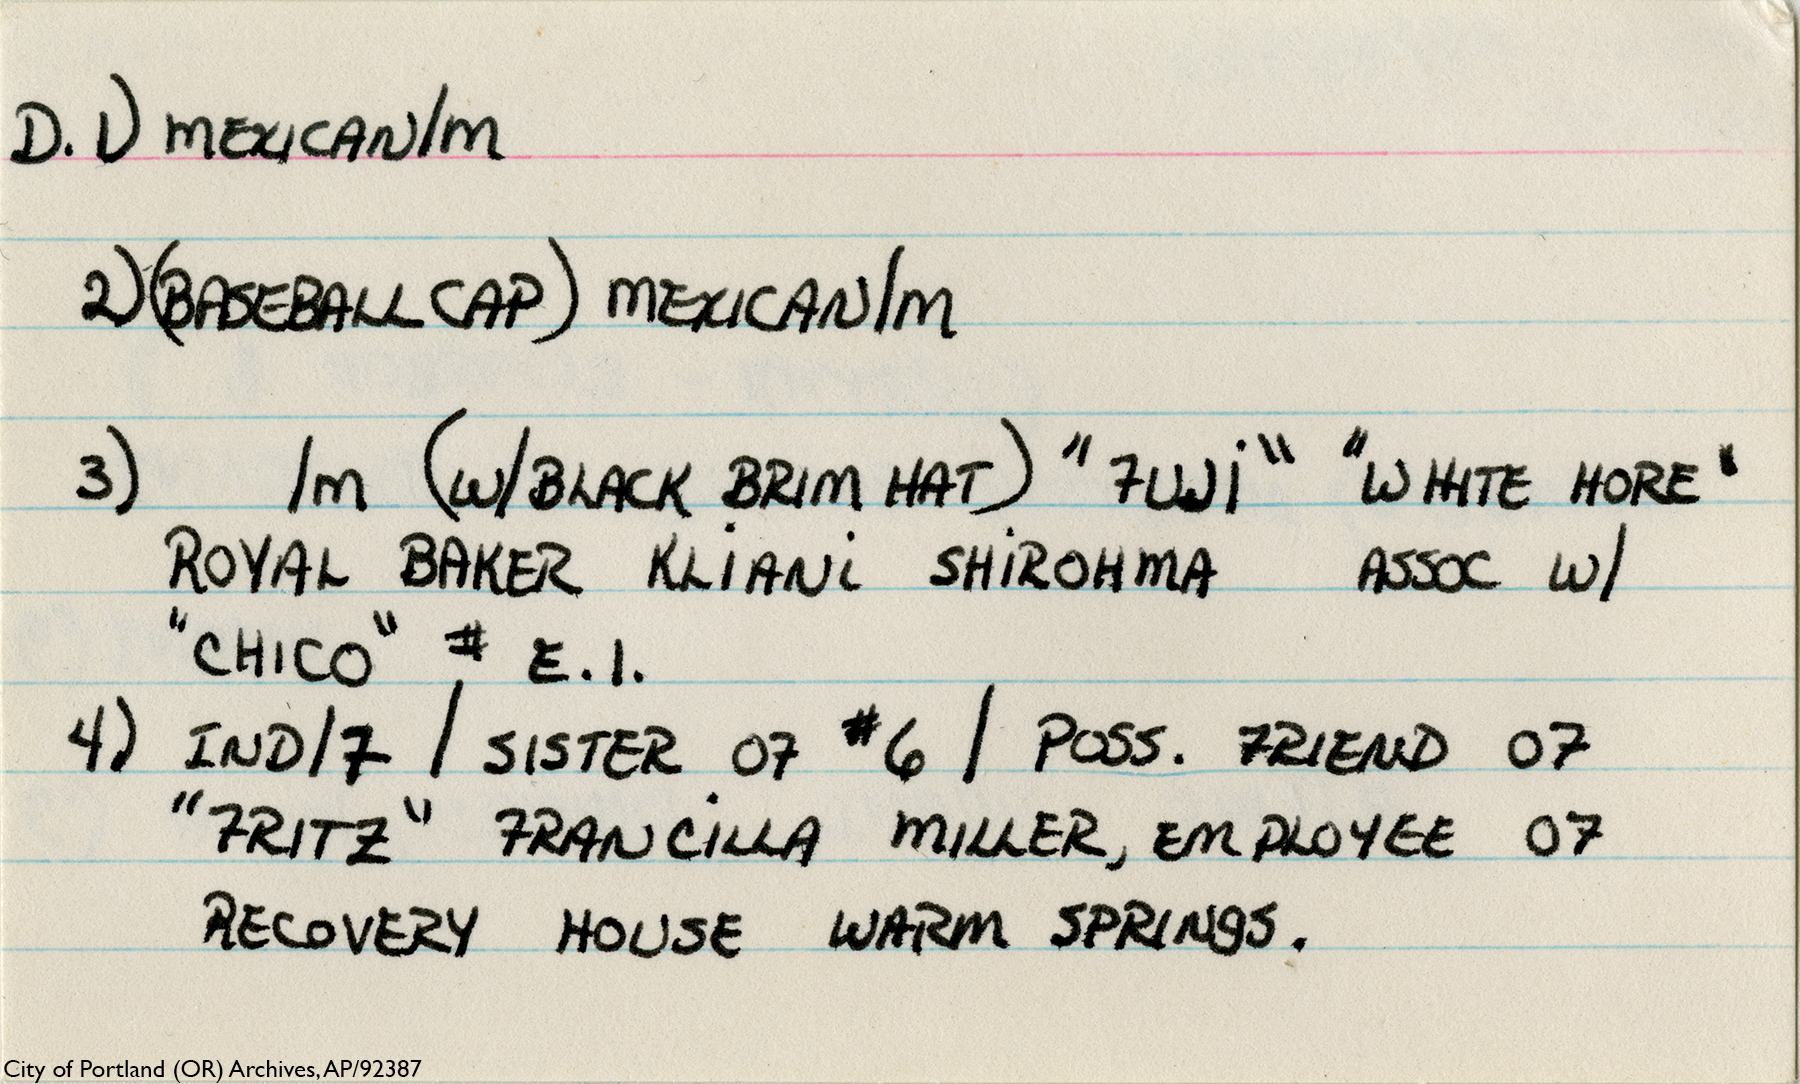 D. 1) MEXICAN/M
2) (BASEBALL CAP) MEXICAN/M
3) /M (W/BLACK BRIM HAT) "FUJi" "WHITE HORE"
ROYAL BAKER KLiANi SHiROHMA ASSOC W/
"CHICO" # E.I.
4) IND/F / SISTER OF #6 / POSS. FRIEND OF
"FRITZ" FRANCiLLA MILLER, EMPLOYEE OF
RECOVERY HOUSE WARM SPRINGS.
City of Portland (OR) Archives, AP/92387